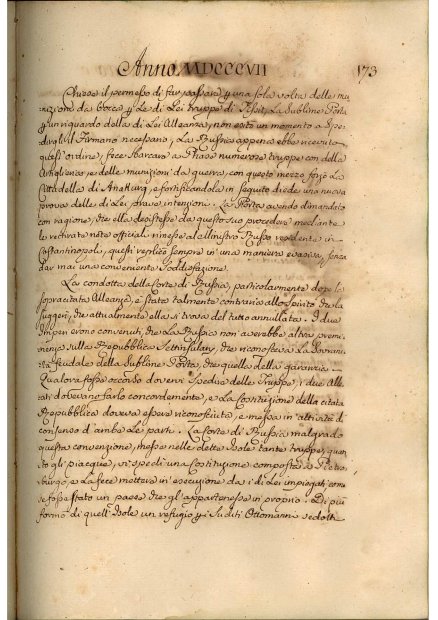 Anno MDCCCVII 173
Chiese il permesso di far passare p una sola volta delle mu-
nizioni da bocca p le di Lei truppe di Tiflis, La Sublime Porta
p un riguardo della di Lei Alleanza, non esitò un momento a spe-
dirgli il Firmano necessario, La Russia appena ebbe ricevuto
quest'ordine, fece sbarcare a Phase numerose truppe con della
Artiglieria, e delle munizioni da guerra, con questo mezzo forzò la
Cittadella di Anakury, e fortificandola in seguito diede una nuova
prova delle di Lei prave intenzioni. La Porta avendo dimandato
con ragione, che ella desistesse da questo suo procedere mediante
le reiterate note officiali rimesse al Ministro Russo residente in
Costantinopoli, questi replicò sempre in una maniera evasiva, senza
dar mai una conveniente soddisfazione.
La condotta della Corte di Russia, particolarmente dopo la
sopracitata Alleanza, è stata talmente contraria allo Spirito che la
suggerì, che attualmente ella si trova del tutto annullata. I due
Imperi erono convenuti, che La Russia non averebbe altra premi-
nenza sulla Repubblica Settinsulare, che riconosceva La Sovrani-
tà feudale della Sublime Porta, che quella della garanzia.
Qualora fosse occorso dovervi spedire delle Truppe, i due Alle-
ati dovevano farlo concordemente, e La Costituzione della citata
Repubblica doveva essere riconosciuta, e messa in attività di
consenso d'ambe Le parti. La Corte di Russia malgrado
questa convenzione, messe nelle dette Isole tante truppe, quan-
to gli piacque, vi spedì una Costituzione composta a Pietro-
burgo, e La fece mettere in esecuzione da i di Lei impiegati, come
se fosse stato un paese che gl'appartenesse in proprio. Di più
formò di quell'Isole un refugio p i Suditi Ottomanni sedotti